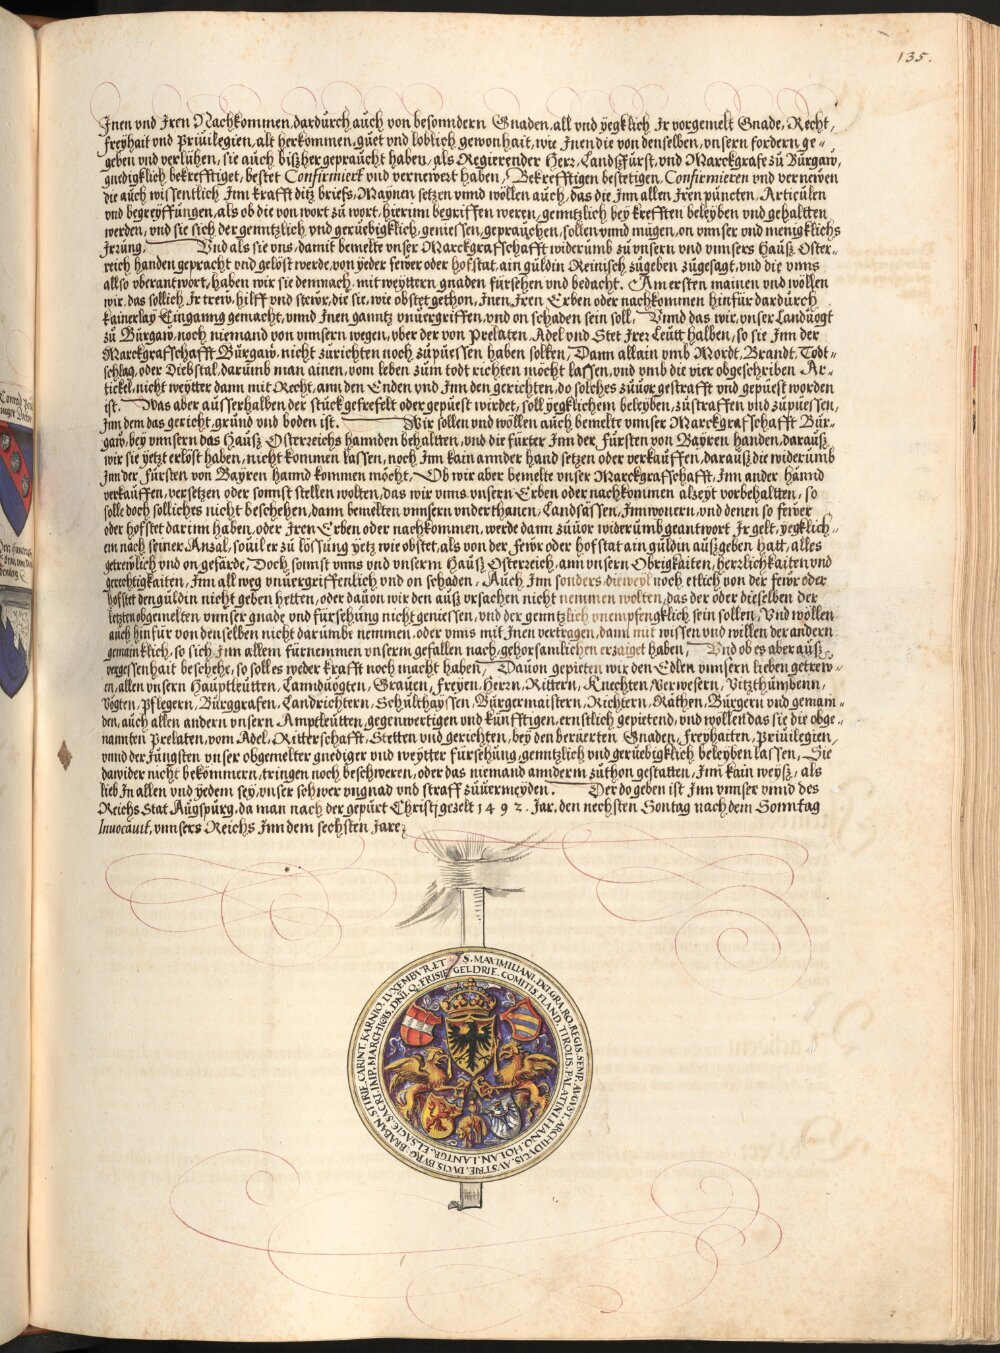 135.
Jnen vnd Jren Nachkommen, dardurch auch von besonndern Gnaden, all vnd yegklich Jr vorgemelt Gnade, Recht,
freyhait vnd Priuilegien, alt herkommen, guet vnd loblich gewonhait, wie Jnen die von denselben, vnsern fordern ge-
geben vnd verlühen, sie auch bißher gepraucht haben, als Regierender Herr, Landsfürst, vnd Marckgrafe zu Burgaw,
gnedigklich bekrefftiget, bestet Confirmiert vnd vernewert haben, Bekrefftigen bestetigen, Confirmieren vnd vernewen
die auch wissentlich Jnn krafft ditz briefs, Maynen setzen vnnd wöllen auch, das die Jnn allen Jren puncten, Articülen
vnd begreyffungen, als ob die von wort zu wort, hierinn begriffen weren, genntzlich bey krefften beleyben vnd gehaltten
werden, vnd sie sich der genntzlich vnd gerüebigklich, geniessen, geprauchen, sollen vnnd mügen, on vnnser vnd menigklichs
Jrrung. Vnd als sie vns, damit bemelte vnser Marckgrafschafft widerümb zu vnsern vnd vnnsers Hauß Oster-
reich handen gepracht vnd gelöst werde, von yeder fewer oder hofstat, ain güldin Reinisch zügeben zügesagt, vnd die vnns
allso vberantwort, haben wir sie demnach, mit weyttern gnaden fürsehen vnd bedacht. Am ersten mainen vnd wöllen
wir, das sollich Jr trew, hilff vnd stewr, die sie, wie obstet gethon, Jnen, Jren Erben oder nachkommen hinfür dardurch
kainerlay Einganng gemacht, vnnd Jnen ganntz vnüergriffen, vnd on schaden sein soll, Vnnd das wir, vnser Landüogt
zu Burgaw, noch niemand von vnnsern wegen, vber der von Prelaten, Adel vnd Stet Jrer Leutt halben, so sie Jnn der
Marckgrafschafft Burgaw, nicht zürichten noch züpüessen haben sollen, Dann allain vmb Mordt, Brandt, Todt-
schlag, oder Diebstal, darümb man ainen, vom leben zum todt richten möcht lassen, vnd vmb die vier obgeschriben Ar-
tickel, nicht weytter dann mit Recht, ann den Enden vnd Jnn den gerichten, do solches züuor gestrafft vnd gepüest worden
ist. Was aber ausserhalben der stück gefrefelt oder gepüest wirdet, soll yegklichem beleyben, züstraffen vnd züpüessen,
Jnn dem das gericht, grund vnd boden ist. Wir sollen vnd wöllen auch bemelte vnnser Marckgrafschafft Bur-
gaw, bey vnnsern das Hauß Osterreichs hannden behaltten, vnd die fürter Jnn der Fürsten von Bayren handen, darauß
wir sie yetzt erlöst haben, nicht kommen lassen, noch Jnn kain annder hand setzen oder verkauffen, darauß die widerümb
Jnn der Fürsten von Bayren hannd kommen möcht, Ob wir aber bemelt vnser Marckgrafschafft, Jnn ander hannd
verkauffen, versetzen oder sonnst stellen wolten, das wir vnns vnsern Erben oder nachkommen alzeyt vorbehaltten, so
solle doch solliches nicht beschehen, dann bemelten vnnsern vnderthanen, Landsassen, Jnnwonern, vnd denen so fewer
oder hofstet darinn haben, oder Jren Erben oder nachkommen, werde dann züuor widerümb geantwort Jr gelt, yegklich-
em nach seiner Anzal, souil er zu lössung yetz wie obstet, als von der fewr oder hofstat ain güldin außgeben hatt, alles
getrewlich vnd on gefärde, Doch sonnst vnns vnd vnserm Hauß Osterreich, ann vnsern Obrigkaiten, herrlichkaiten vnd
gerechtigkaiten, Jnn all weg vnüergriffenlich vnd on schaden, Auch Jnn sonders dieweyl noch etlich von der fewr oder
hofstet den güldin nicht geben hetten, oder dauon wir den auß vrsachen nicht nemmen wolten, das der oder dieselben der
letzten obgemelten vnnser gnade vnd fürsehung nicht geniessen, vnd der genntzlich vnempfengklich sein sollen, Vnd wöllen
auch hinfür von denselben nicht darumbe nemmen, oder vnns mit Jnen vertragen, dann mit wissen vnd willen der andern
gemainklich, so sich Jnn allem fürnemmen vnserm gefallen nach, gehorsamlichen erzaiget haben, Vnd ob es aber auß
vergessenhait beschehe, so soll es weder krafft noch macht haben, Dauon gepieten wir den Edlen vnnsern lieben getrew-
en, allen vnsern Hauptleutten, Lanndüögten, Grauen, Freyen, Herrn, Rittern, Knechten, Verwesern, Vitzthumbenn,
Vögten, Pflegern, Burggrafen, Landrichtern, Schulthayssen, Bürgermaistern, Richtern, Räthen, Bürgern vnd gemain-
den, auch allen andern vnsern Amptleutten, gegenwertigen vnd künfftigen, ernstlich gepietend, vnd wöllen das sie die obge-
nannten Prelaten, vom Adel, Ritterschafft, Stetten vnd gerichten, bey den beruerten Gnaden, Freyhaiten, Priuilegien,
vnnd der Jüngsten vnser obgemelter gnediger vnd weytter fürsehung, genntzlich vnd gerüebigklich beleyben lassen, Sie
dawider nicht bekömmern, tringen noch beschweren, oder das niemand anndern züthon gestatten, Jnn kain weyß, als
lieb Jn allen vnd yedem sey, vnser schwer vngnad vnd straff züuermeyden. Der do geben ist Jnn vnnser vnnd des
Reichs Stat Augspurg, da man nach der gepürt Christj gezelt 1492. Jar, den nechsten Sontag nach dem Sonntag
Inuocauit, vnnsers Reichs Jnn dem sechsten Jare.
S. MAXIMILIANI. DEI. GRA. RO. REGIS. SEMP. AVGVST. ARCHIDVCIS. AVSTRIE. DVCIS. BVRG. BRABAN. STIRIE. CARINT. KARNIO. LVXEMBVR. ET
GELDRIE. COMITIS. FLAND. TIROLIS. PALATINI. HANO. HOLAN. LANTGR. ELSACIE. SACRI. IMP. MARCHIOIS. DNI. Q. FRISIE